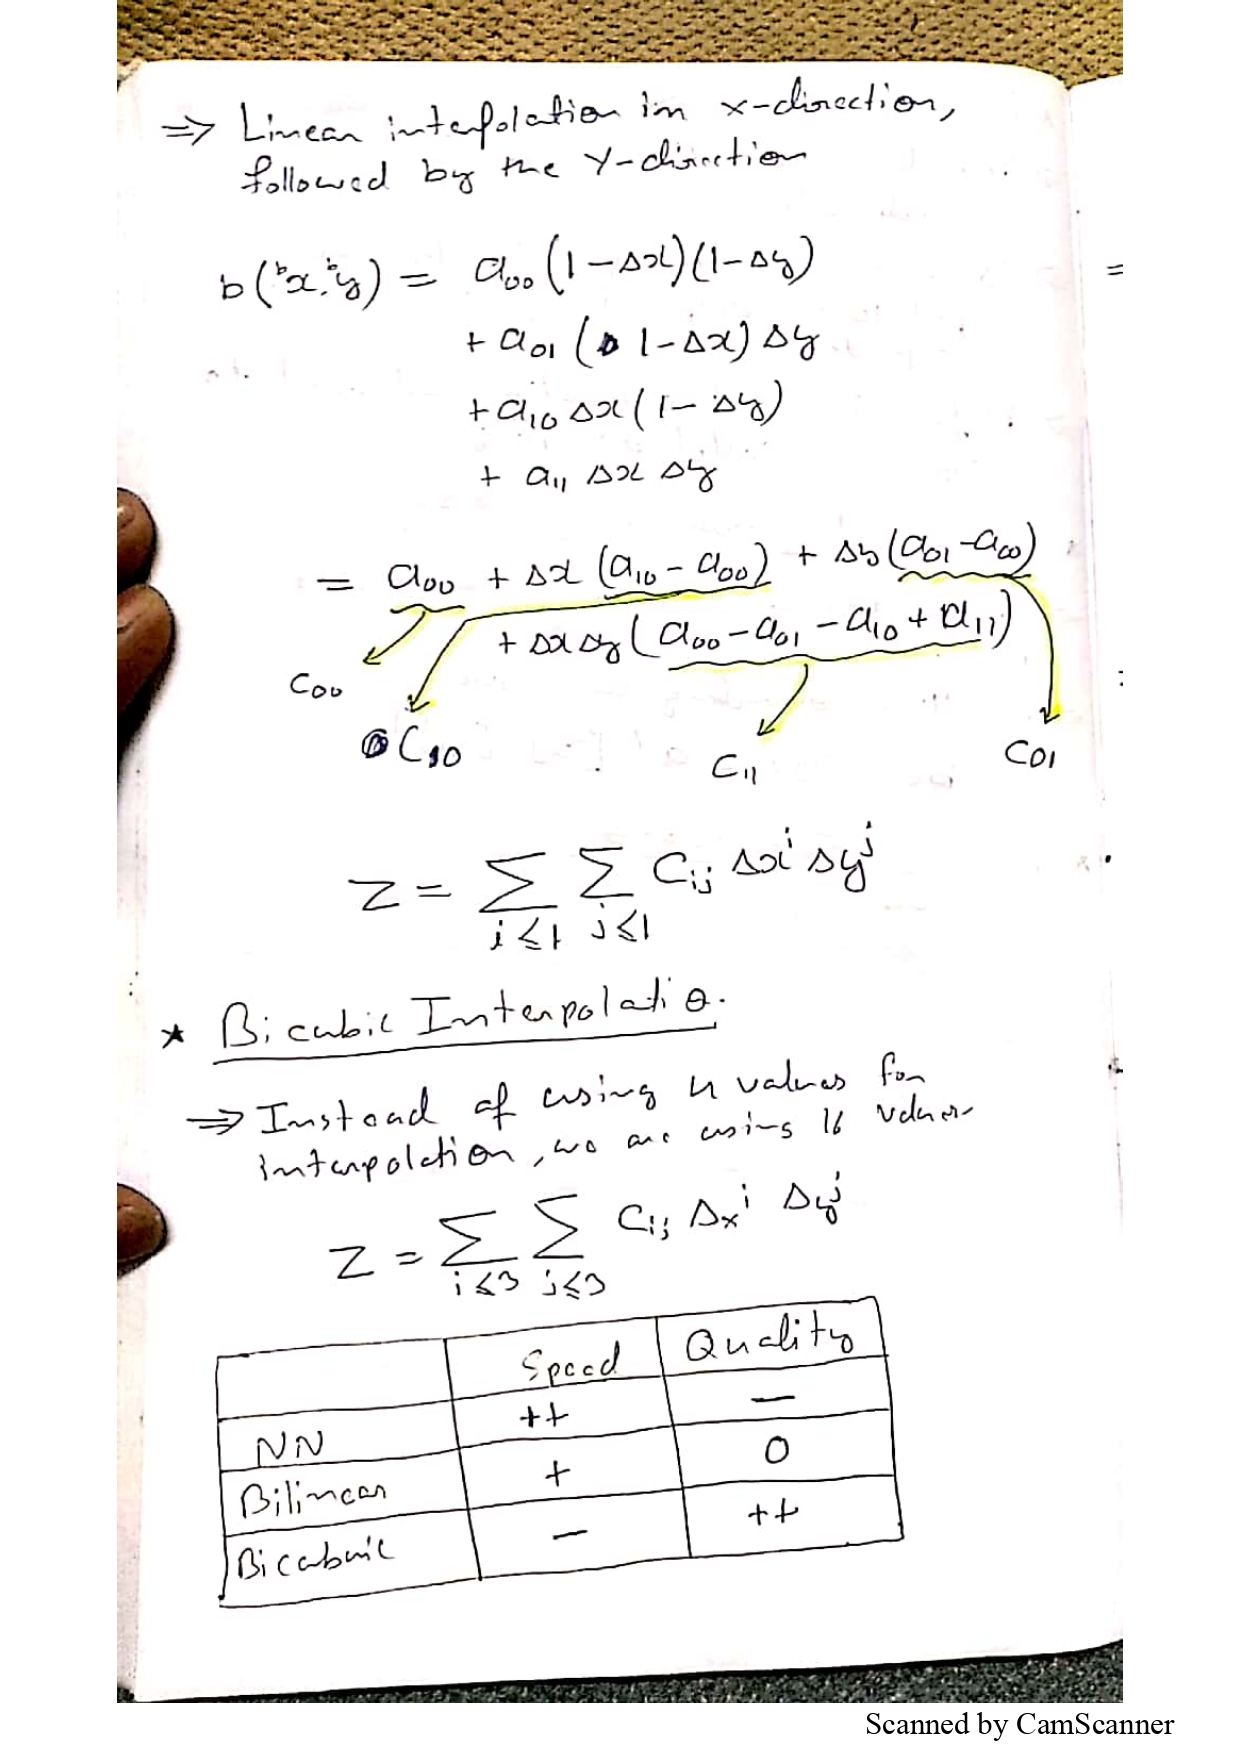 ⇒ Linear interpolation in x-direction,
followed by the Y-direction
b(ᵇx, ᵇy) = a₀₀ (1 - Δx)(1 - Δy)
+ a₀₁ (1 - Δx) Δy
+ a₁₀ Δx (1 - Δy)
+ a₁₁ Δx Δy
= a₀₀ + Δx (a₁₀ - a₀₀) + Δy (a₀₁ - a₀₀)
+ Δx Δy (a₀₀ - a₀₁ - a₁₀ + a₁₁)
C₀₀
C₁₀
C₁₁
C₀₁
Z = Σ Σ Cᵢⱼ Δxⁱ Δyʲ
i ≤ 1 j ≤ 1
★ Bicubic Interpolatio.
⇒ Instead of using 4 values for
interpolation, we are using 16 values
Z = Σ Σ Cᵢⱼ Δxⁱ Δyʲ
i ≤ 3 j ≤ 3
Speed Quality
NN ++ —
Bilinear + 0
Bicubic — ++
Scanned by CamScanner